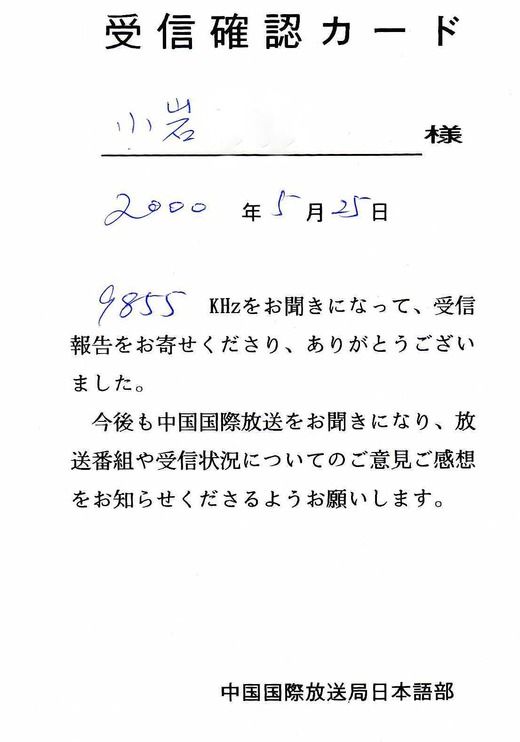 受信確認カード
小岩 様
2000 年 5 月 25 日
9855 KHzをお聞きになって、受信
報告をお寄せくださり、ありがとうござい
ました。
今後も中国国際放送をお聞きになり、放
送番組や受信状況についてのご意見ご感想
をお知らせくださるようお願いします。
中国国際放送局日本語部